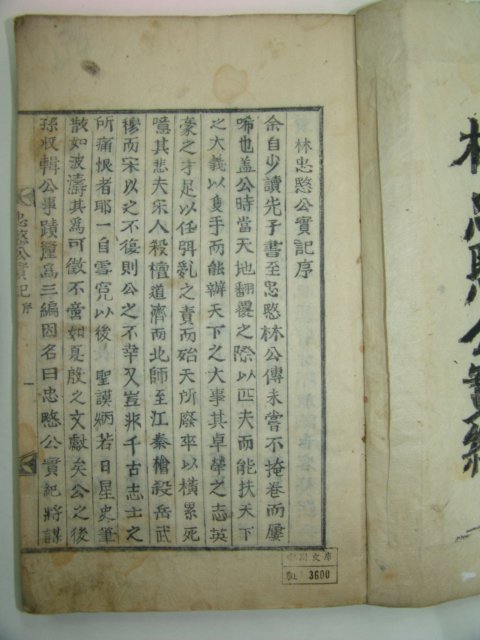 林忠愍公實記序
余自少讀先子書至忠愍林公傳未嘗不掩卷而屢
唏也盖公時當天地翻覆之際以匹夫而能扶天下
之大義以隻手而能辦天下之大事其卓犖之志英
豪之才足以任弭亂之責而殆天所廢卒以橫罹死
噫其悲夫宋人殺檀道濟而北師至江秦檜殺岳武
穆而宋以之不復則公之不幸又豈非千古志士之
所痛恨者耶一自雪寃以後 聖謨炳若日星史筆
散如波濤其爲可徵不啻如夏殷之文獻矣公之後
孫收輯公事蹟釐爲三編因名曰忠愍公實紀將謀
忠愍公實記 序
一
3600